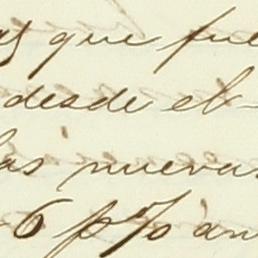 que fue
desde el
las nuevas
6 p% an